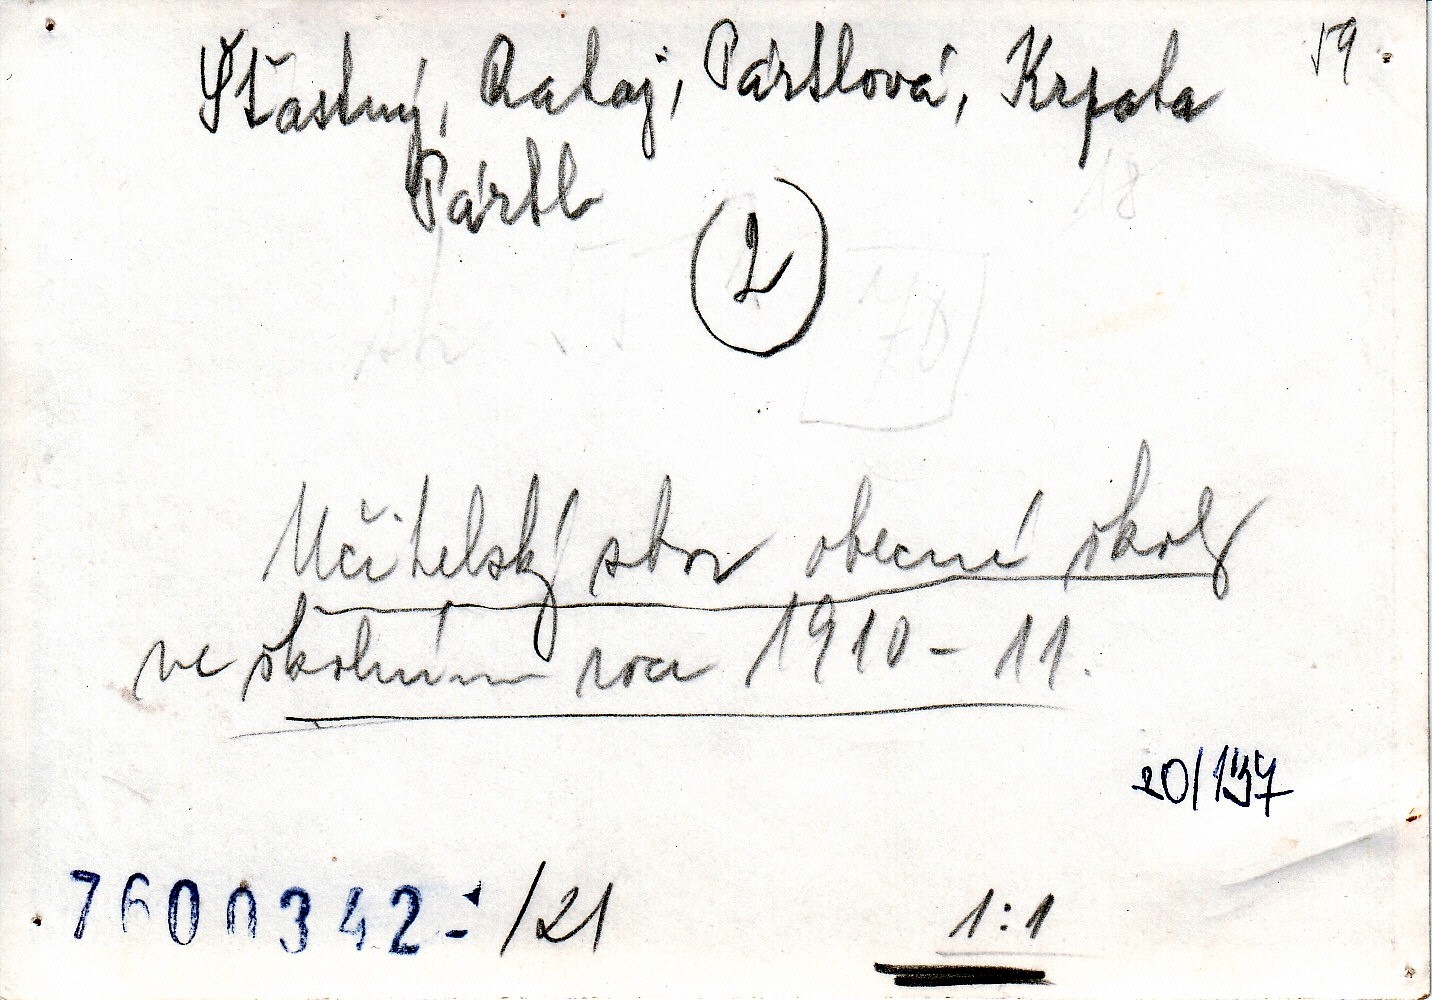 Šťastný, Rataj, Pártlová, Krpata
59
Pártl
18
2
Učitelský sbor obecné školy
ve školním roce 1910-11.
20/137
7600342- /21
1:1